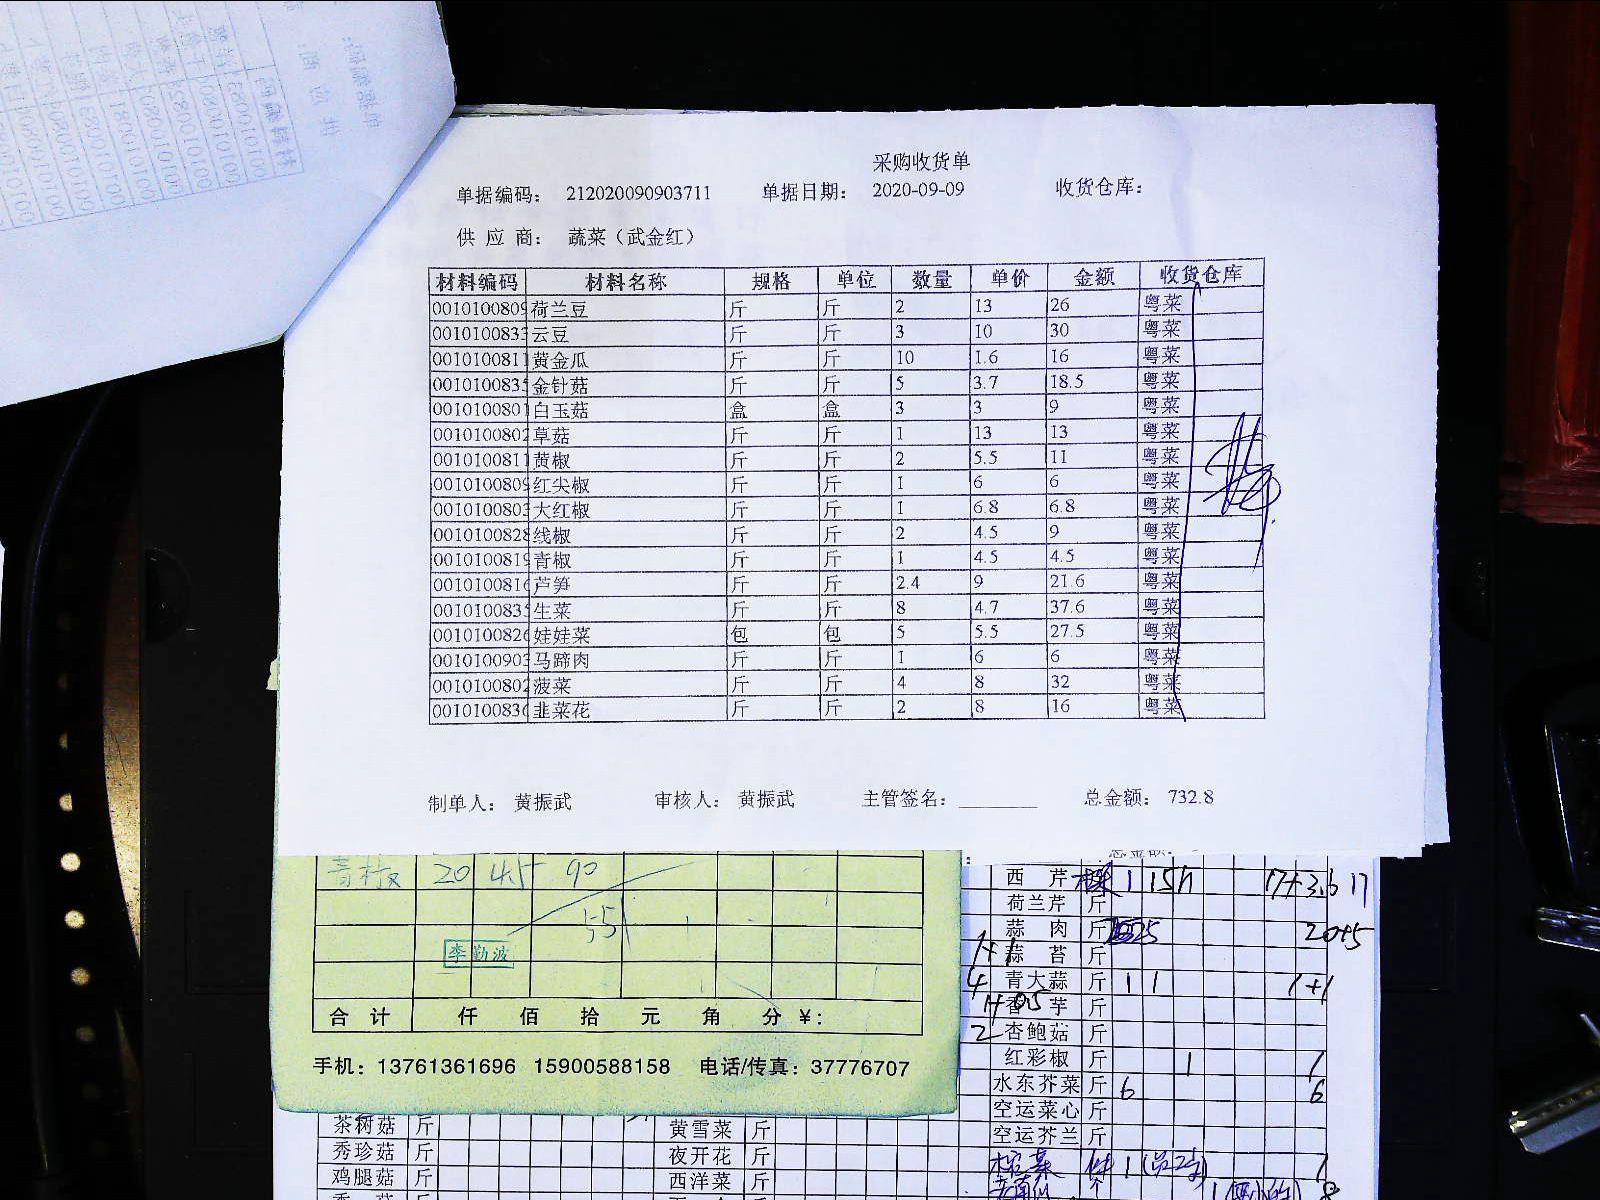 采购收货单
单据编码： 212020090903711 单据日期： 2020-09-09 收货仓库：
供 应 商： 蔬菜（武金红）
材料编码 材料名称 规格 单位 数量 单价 金额 收货仓库
0010100809 荷兰豆 斤 斤 2 13 26 粤菜
0010100833 云豆 斤 斤 3 10 30 粤菜
0010100811 黄金瓜 斤 斤 10 1.6 16 粤菜
0010100835 金针菇 斤 斤 5 3.7 18.5 粤菜
0010100801 白玉菇 盒 盒 3 3 9 粤菜
0010100802 草菇 斤 斤 1 13 13 粤菜
0010100811 黄椒 斤 斤 2 5.5 11 粤菜
0010100809 红尖椒 斤 斤 1 6 6 粤菜
0010100803 大红椒 斤 斤 1 6.8 6.8 粤菜
0010100828 线椒 斤 斤 2 4.5 9 粤菜
0010100819 青椒 斤 斤 1 4.5 4.5 粤菜
0010100816 芦笋 斤 斤 2.4 9 21.6 粤菜
0010100835 生菜 斤 斤 8 4.7 37.6 粤菜
0010100826 娃娃菜 包 包 5 5.5 27.5 粤菜
0010100903 马蹄肉 斤 斤 1 6 6 粤菜
0010100802 菠菜 斤 斤 4 8 32 粤菜
0010100836 韭菜花 斤 斤 2 8 16 粤菜
制单人： 黄振武 审核人： 黄振武 主管签名： 总金额： 732.8
青椒 20 4.5 90
551
李勤波
合 计 仟 佰 拾 元 角 分 ¥：
手机：13761361696 15900588158 电话/传真：37776707
西 芹 1 17+3.6 17
荷兰芹 斤
蒜 肉 斤 20+5
蒜 苔 斤
4 青大蒜 斤 1 1 1+1
香 芋 斤
2 杏鲍菇 斤
红彩椒 斤 1 1
水东芥菜 斤 6 6
空运菜心 斤
空运芥兰 斤
茶树菇 斤 黄雪菜 斤
秀珍菇 斤 夜开花 斤
鸡腿菇 斤 西洋菜 斤